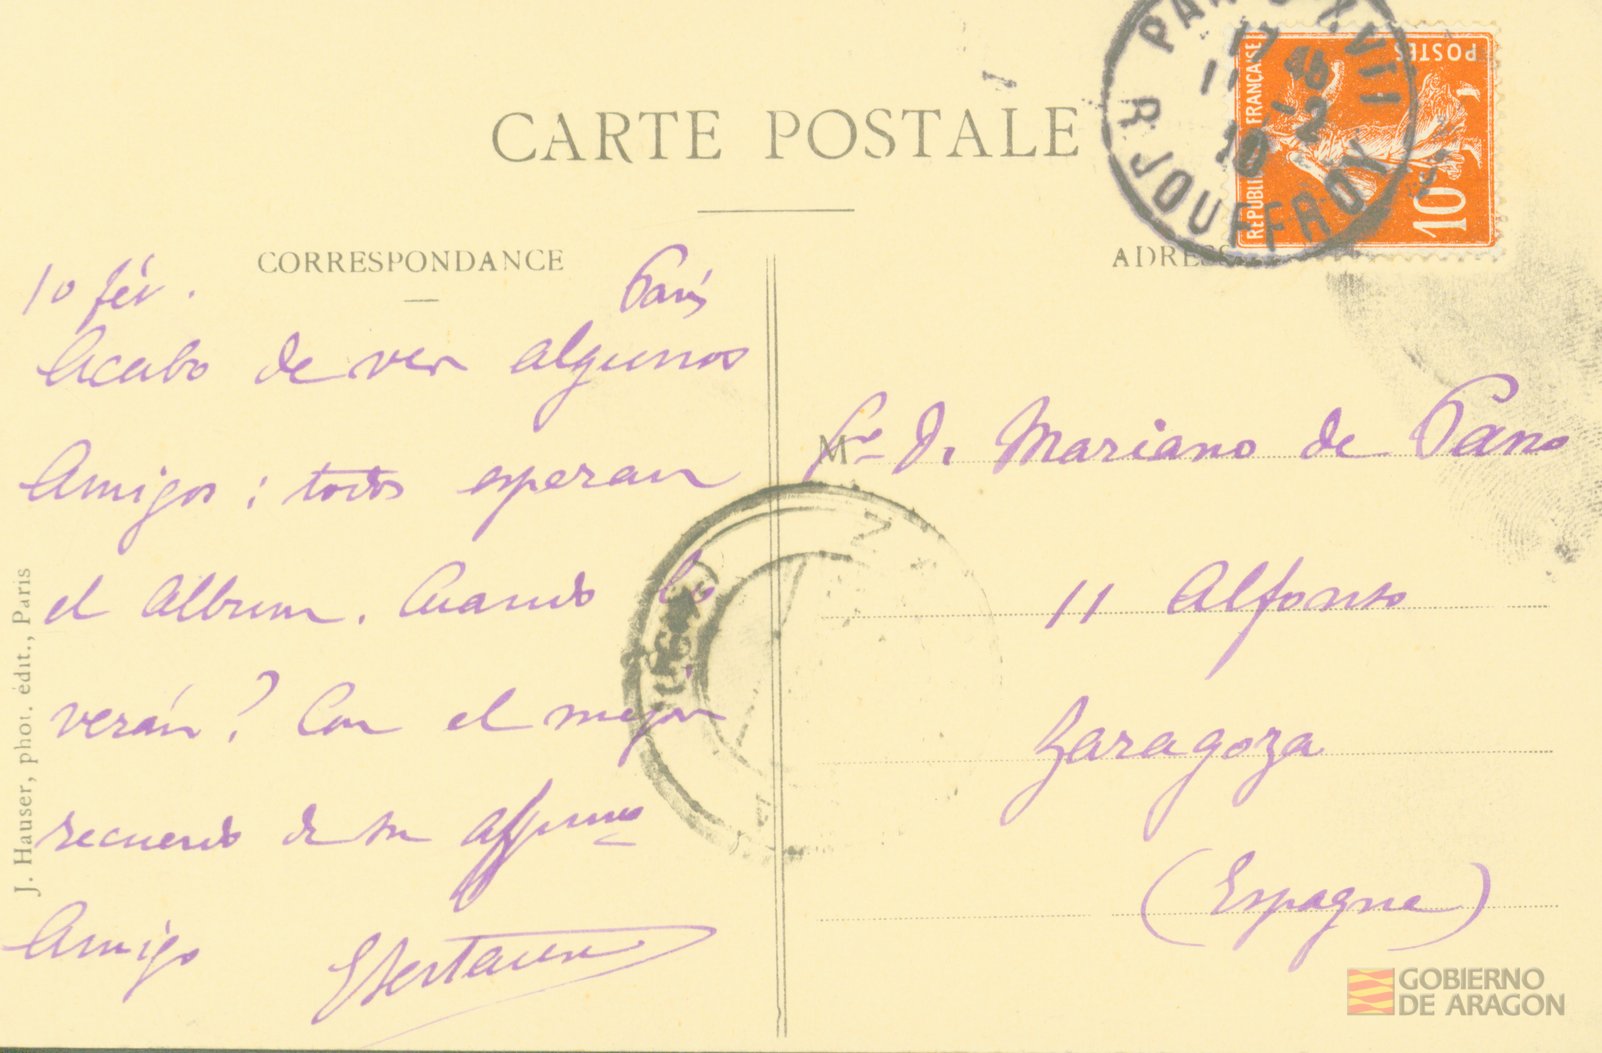 CARTE POSTALE
CORRESPONDANCE
ADRESSE
10 fév. París
Acabo de ver algunos
Amigos; todos esperan
el album. Cuando lo
verán? Con el mejor
recuerdo de su affmo
Amigo
Mr D. Mariano de Pano
11 Alfonso
Zaragoza
(Espagne)
J. Hauser, phot. édit., Paris
REPUBLIQUE FRANÇAISE
POSTES
10c
PARIS XVII
17 45
11 - 2
10
R JOUFFROY
GOBIERNO
DE ARAGON